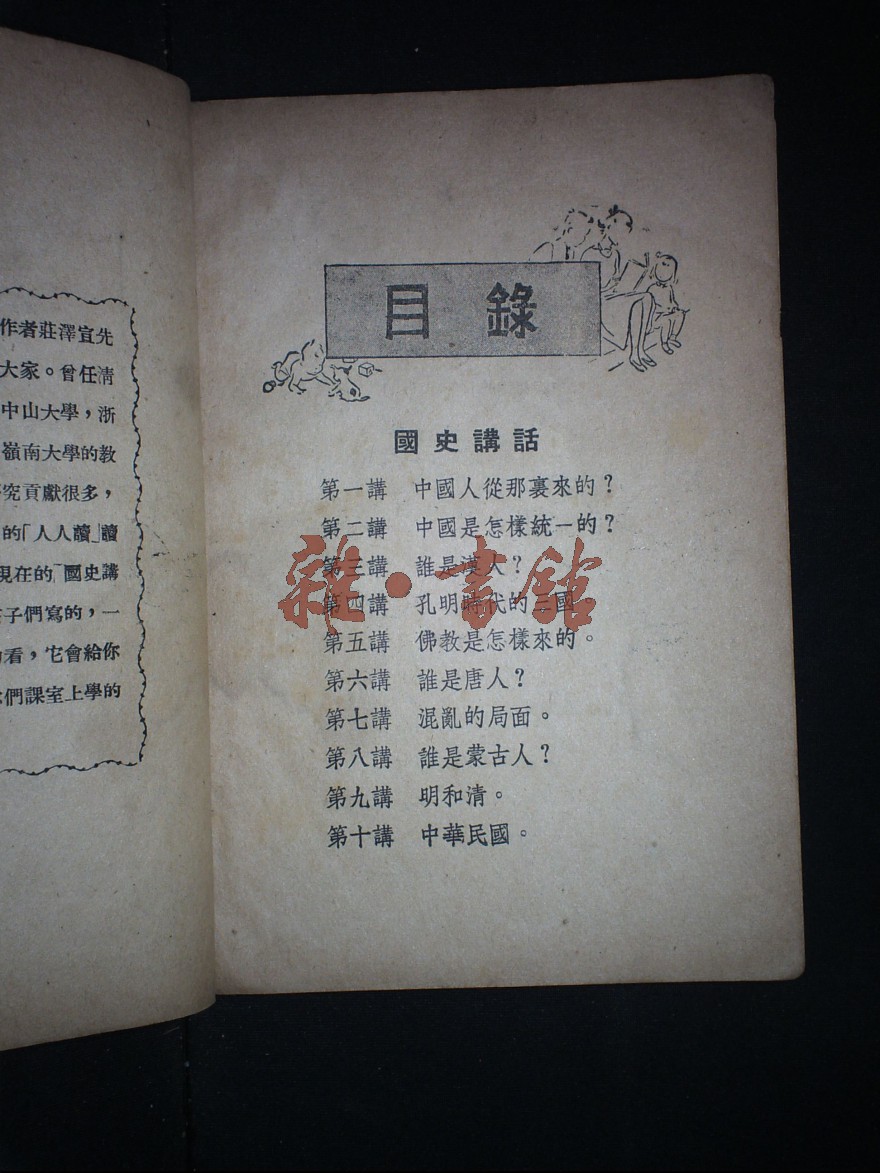 作者莊澤宣先
大家。曾任清
中山大學，浙
嶺南大學的敎
究貢獻很多，
的「人人讀」讀
現在的「國史講
子們寫的，一
看，它會給你
們課室上學的
目錄
國史講話
第一講 中國人從那裏來的？
第二講 中國是怎樣統一的？
第三講 誰是漢人？
第四講 孔明時代的三國。
第五講 佛教是怎樣來的。
第六講 誰是唐人？
第七講 混亂的局面。
第八講 誰是蒙古人？
第九講 明和清。
第十講 中華民國。
雜·書館